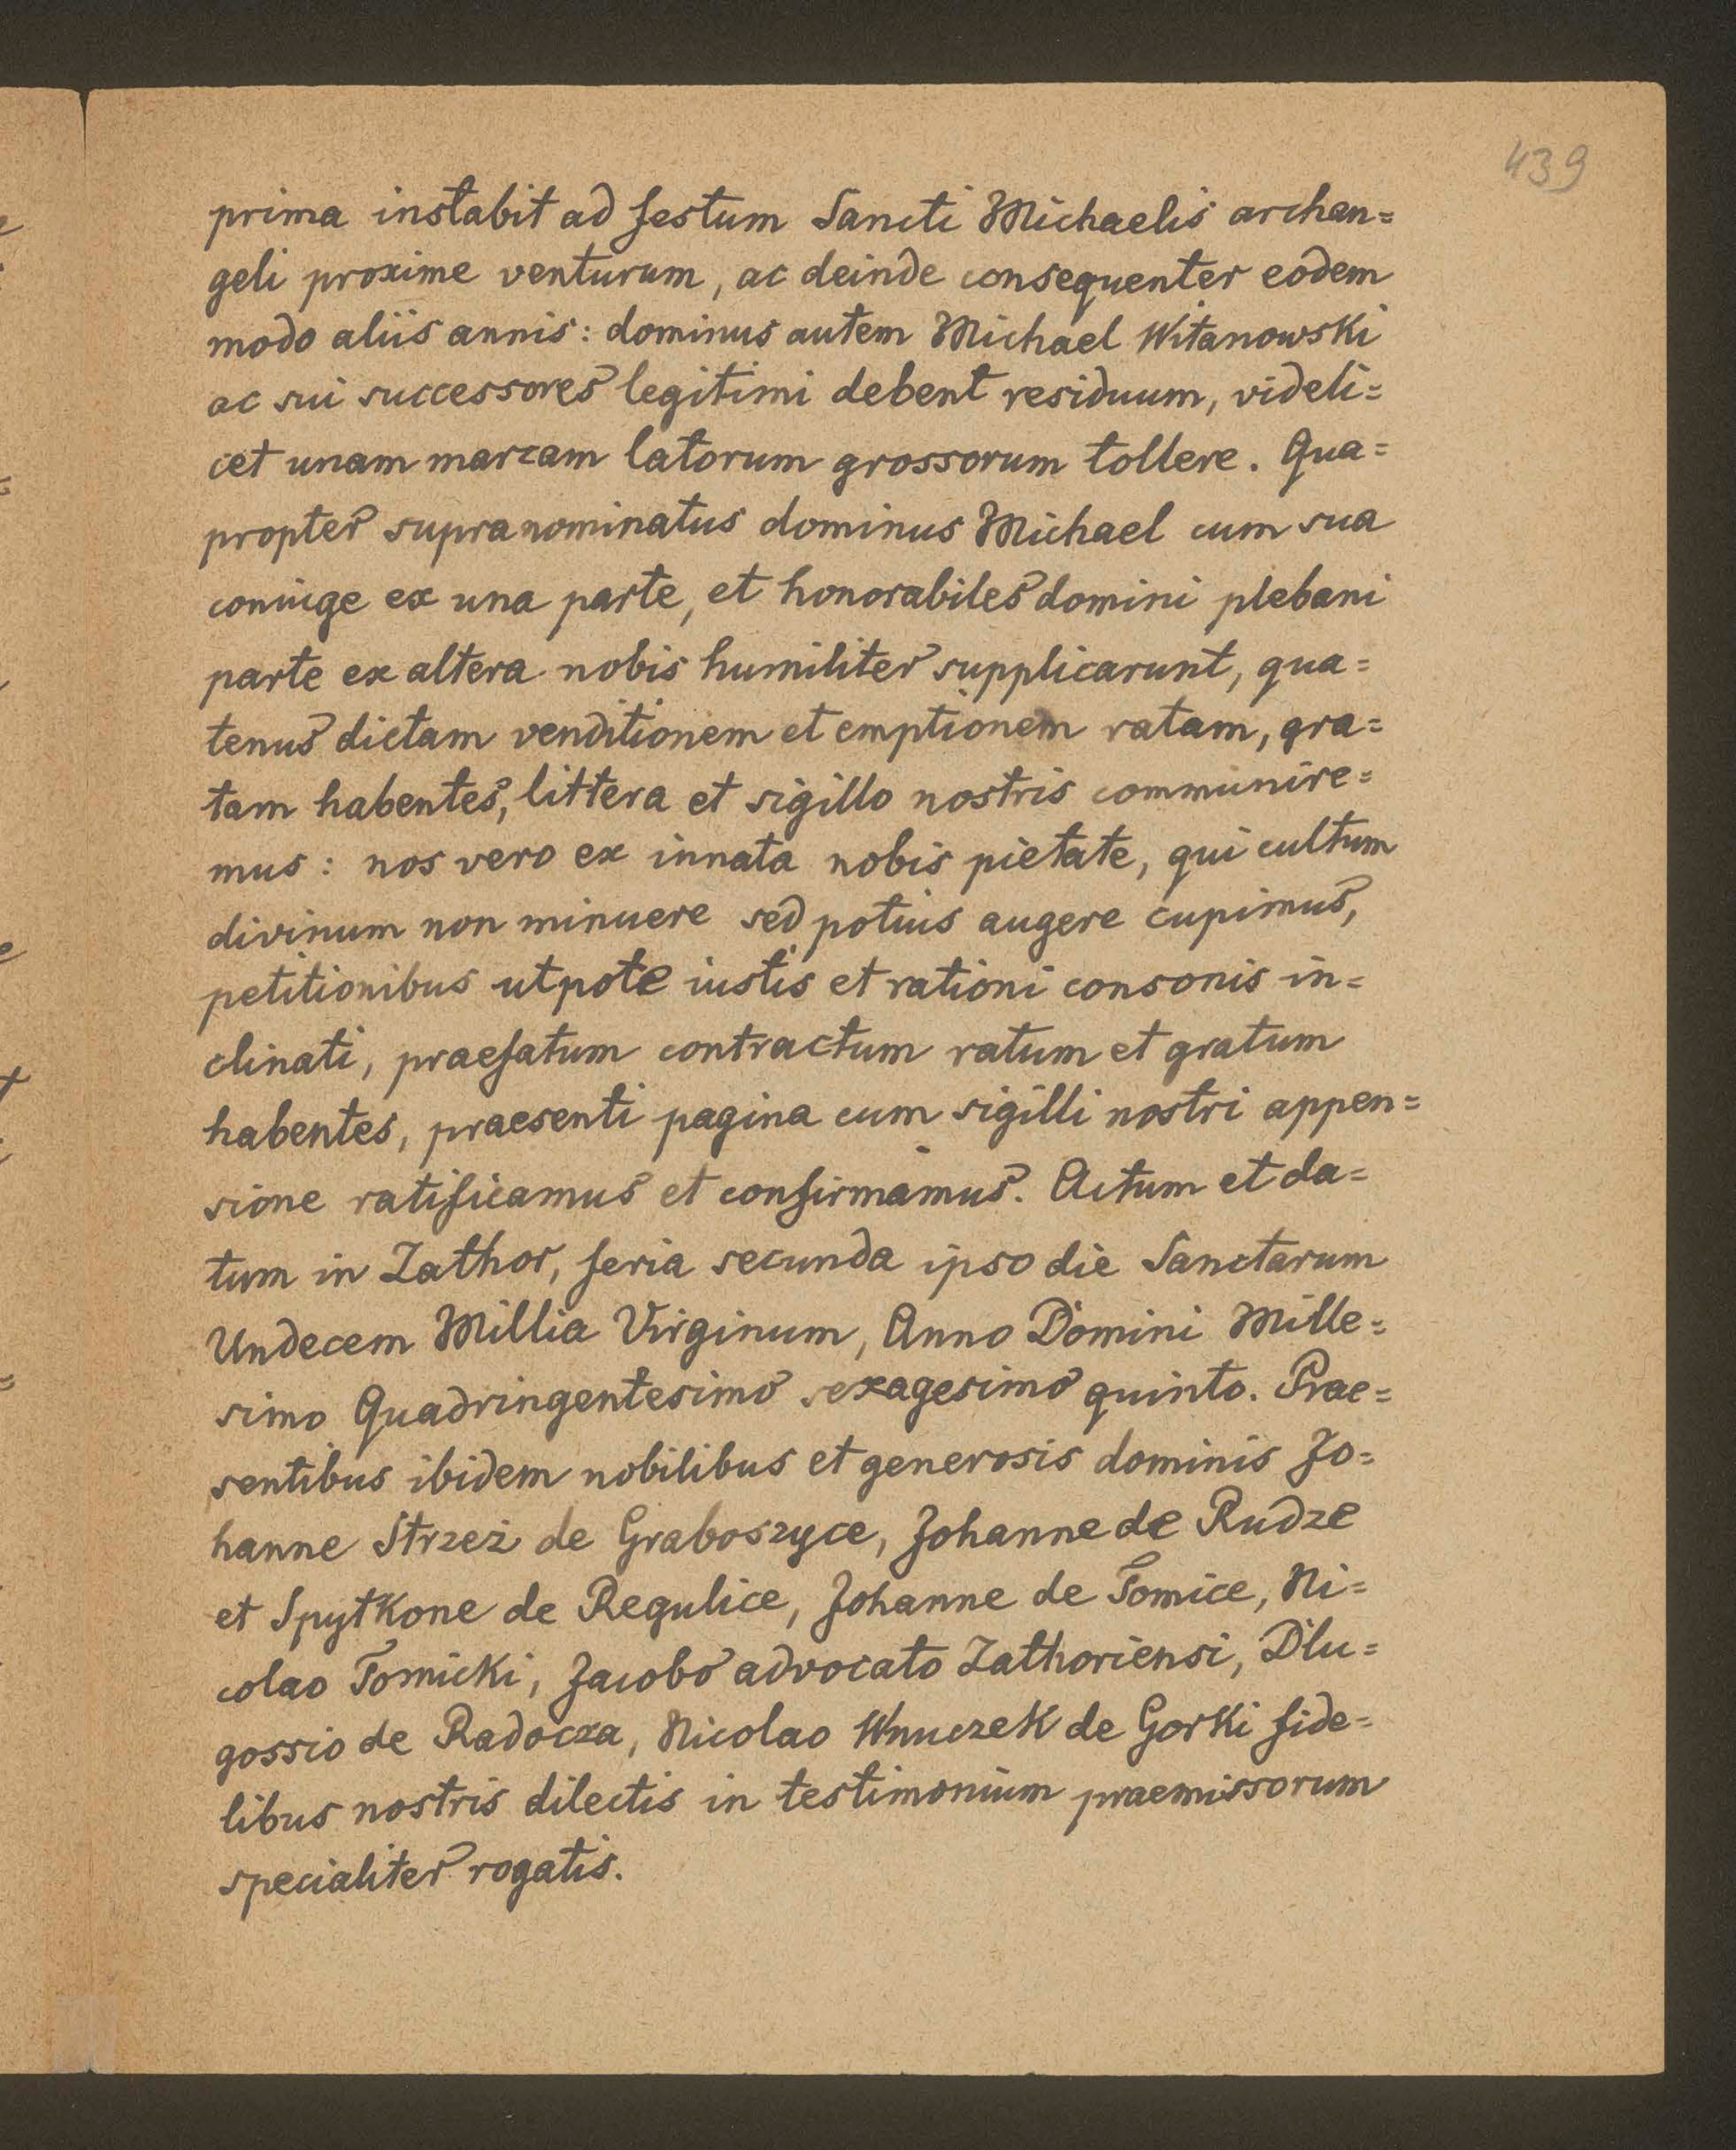 439
prima instabit ad festum Sancti Michaelis archan=
geli proxime venturum, ac deinde consequenter eodem
modo aliis annis: dominus autem Michael Witanowski
ac sui successores legitimi debent residuum, videli=
cet unam marcam latorum grossorum tollere. Qua=
propter supranominatus dominus Michael cum sua
coniuge ex una parte, et honorabiles domini plebani
parte ex altera nobis humiliter supplicarunt, qua=
tenus dictam venditionem et emptionem ratam, gra=
tam habentes, littera et sigillo nostris communire=
mus: nos vero ex innata nobis pietate, qui cultum
divinum non minuere sed potius augere cupimus,
petitionibus utpote iustis et rationi consonis in=
clinati, praefatum contractum ratum et gratum
habentes, praesenti pagina cum sigilli nostri appen=
sione ratificamus et confirmamus. Actum et da=
tum in Zathor, feria secunda ipso die Sanctarum
Undecem Millia Virginum, Anno Domini Mille=
simo Quadringentesimo sexagesimo quinto. Prae=
sentibus ibidem nobilibus et generosis dominis Jo=
hanne Strzeż de Graboszyce, Johanne de Rudze
et Spytkone de Regulice, Johanne de Tomice, Ni=
colao Tomicki, Jacobo advocato Zathoriensi, Dlu=
gossio de Radocza, Nicolao Wnuczek de Gorki fide=
libus nostris dilectis in testimonium praemissorum
specialiter rogatis.